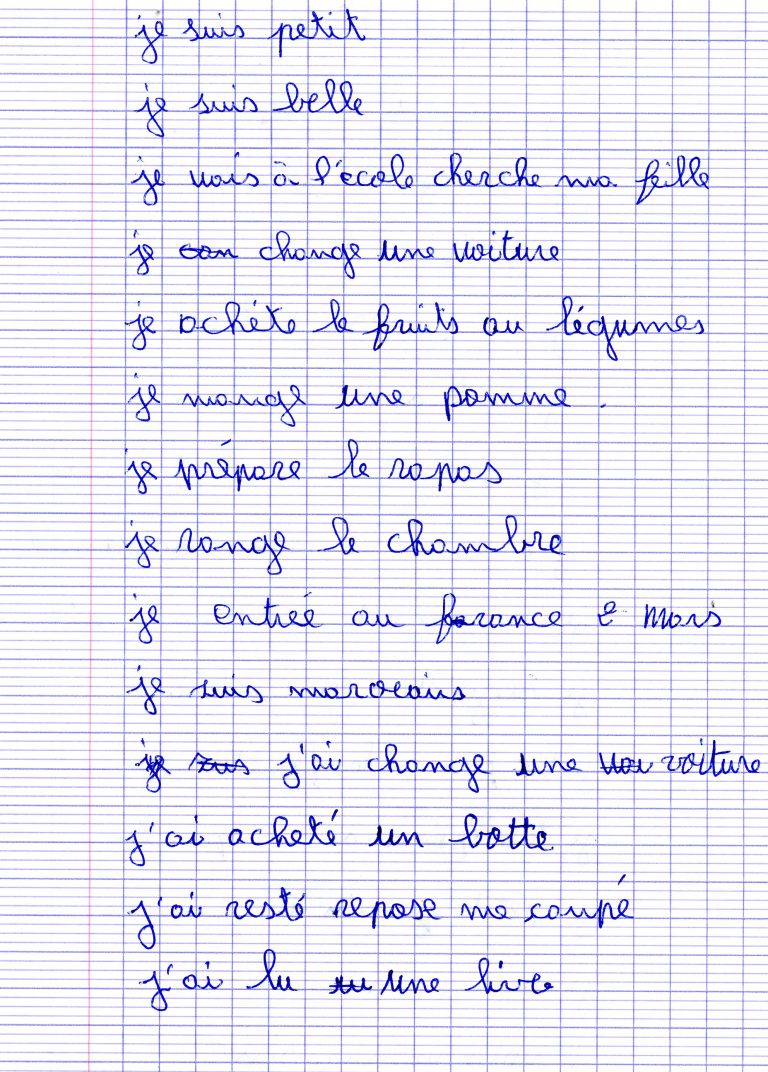 je suis petit
je suis belle
je vais à l'école cherche ma fille
je change une voiture
je achéte le fruits au légumes
je mange une pomme.
je prépare le repas
je range le chambre
je entrée au france 2 mars
je suis marocains
j'ai change une voiture
j'ai acheté un botte
j'ai resté repose me coupé
j'ai lu une livre